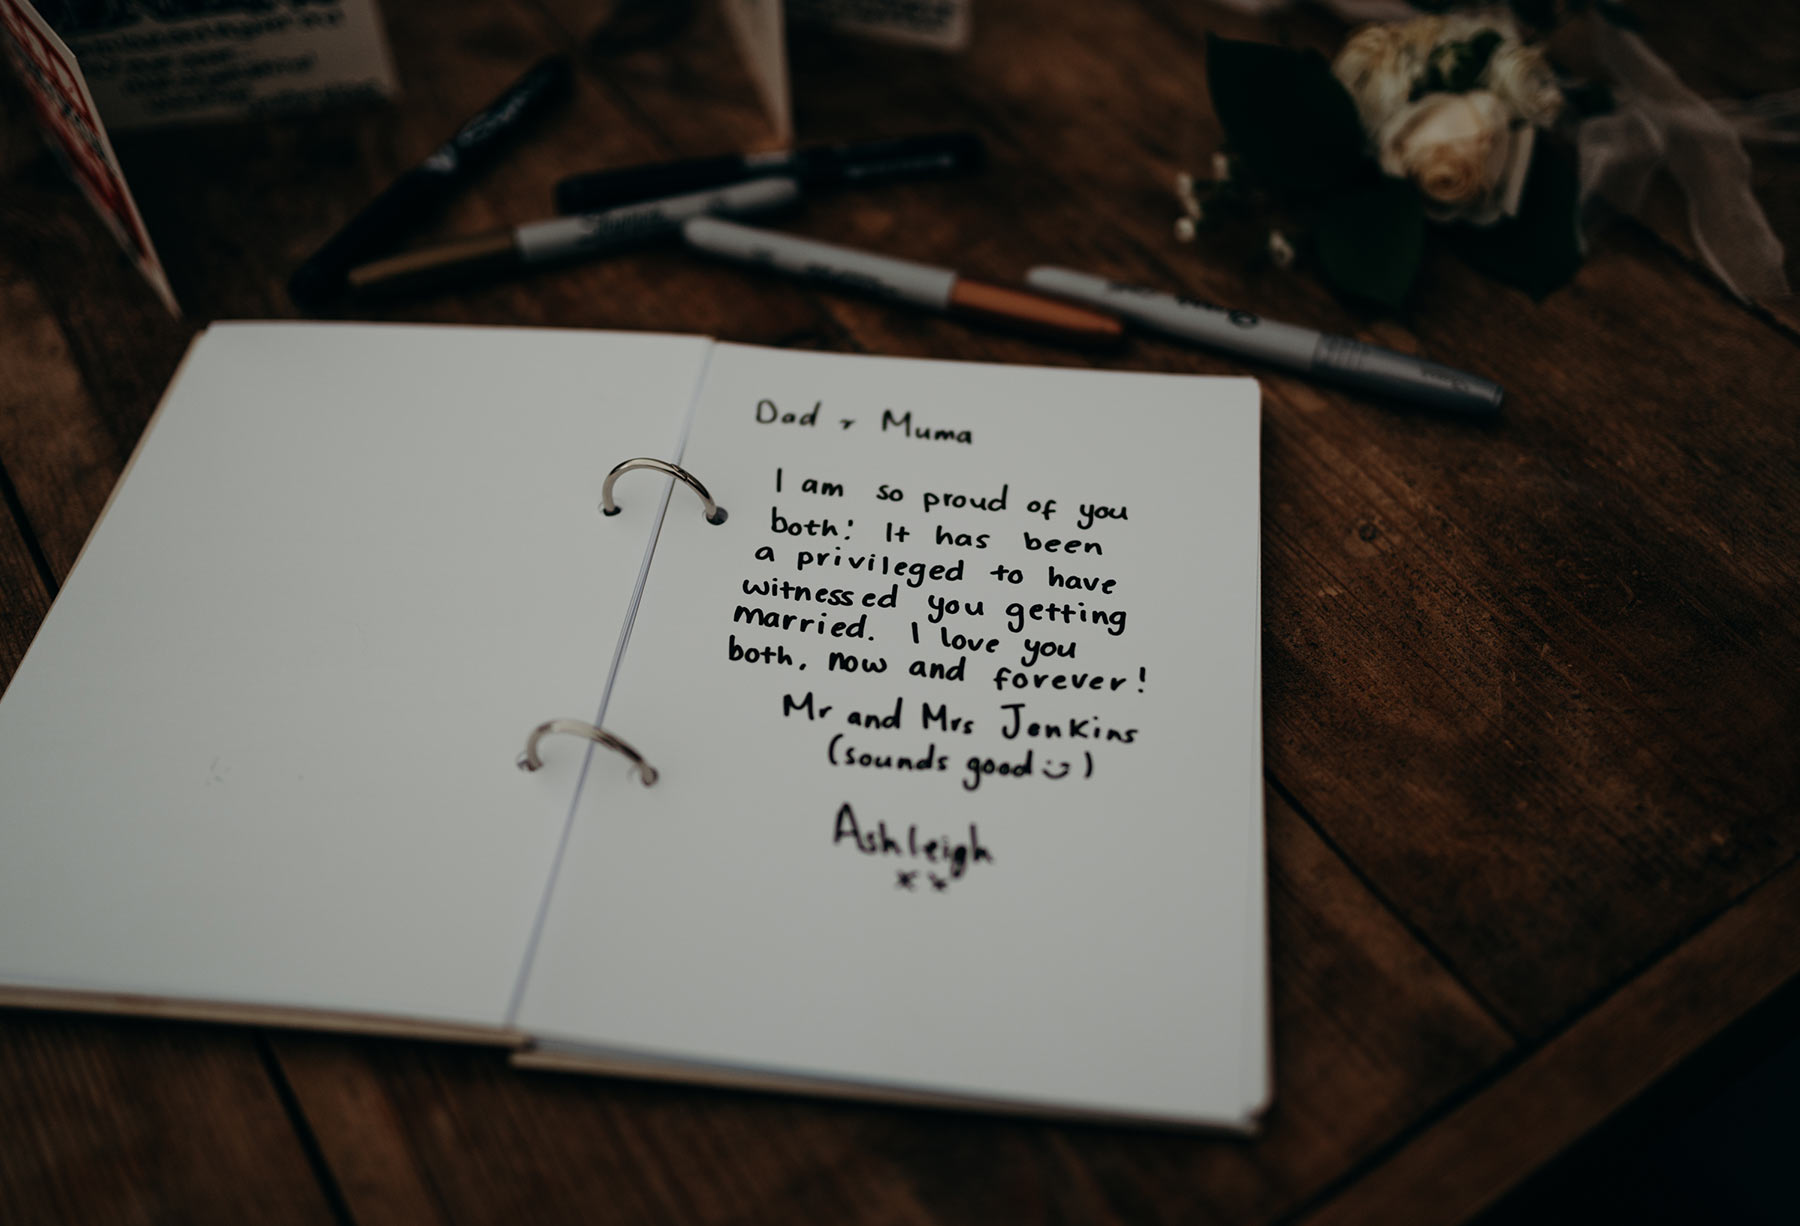 Dad + Muma
I am so proud of you
both! It has been
a privileged to have
witnessed you getting
married. I love you
both, now and forever!
Mr and Mrs Jenkins
(sounds good :))
Ashleigh
xx